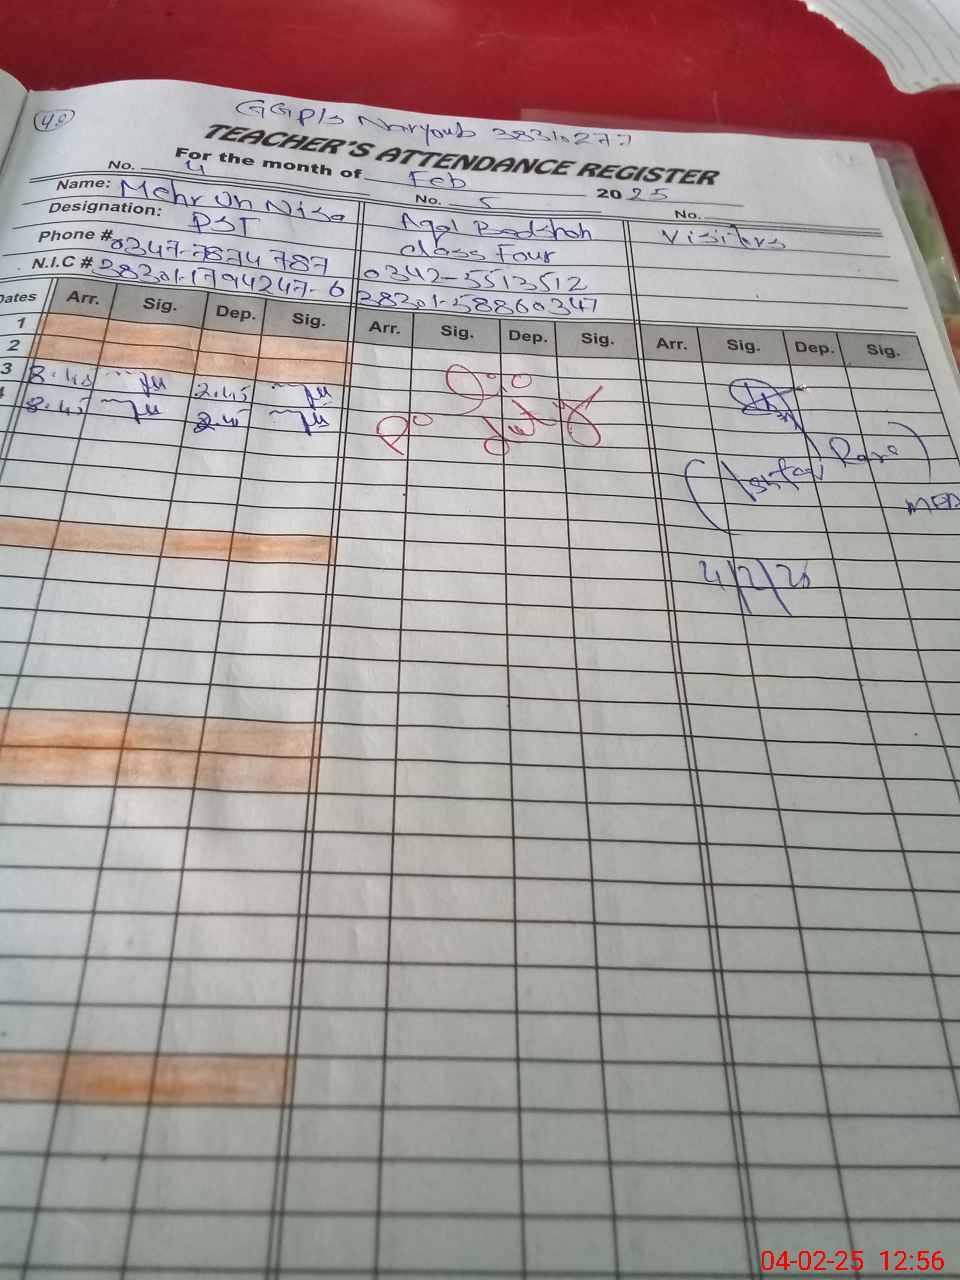 40
GGPS Naryoub 38310277
TEACHER'S ATTENDANCE REGISTER
For the month of Feb 2025
No. 4 No. 5 No.
Name: Mehr Un Nisa Aqal Badshah Visitors
Designation: PST Class Four
Phone # 0347-7874787 0342-5513512
N.I.C # 38301-1794247-6 38301-58860347
Dates Arr. Sig. Dep. Sig. Arr. Sig. Dep. Sig. Arr. Sig. Dep. Sig.
1
2
3 8.45 2.45
4 8.45 2.45
4/2/25
04-02-25 12:56